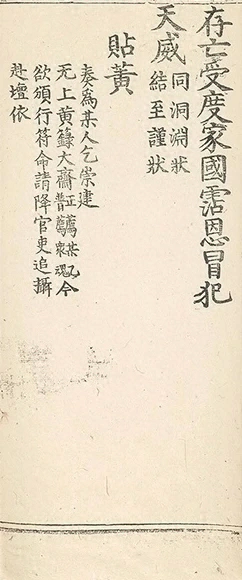 存亡受度家國霑恩冒犯
天威同洞淵狀
結至謹狀
貼黃
奏為某人乞崇建
无上黄籙大齋正薦某乙
普薦衆魂今
欲頒行符命請降官吏追攝
赴壇依